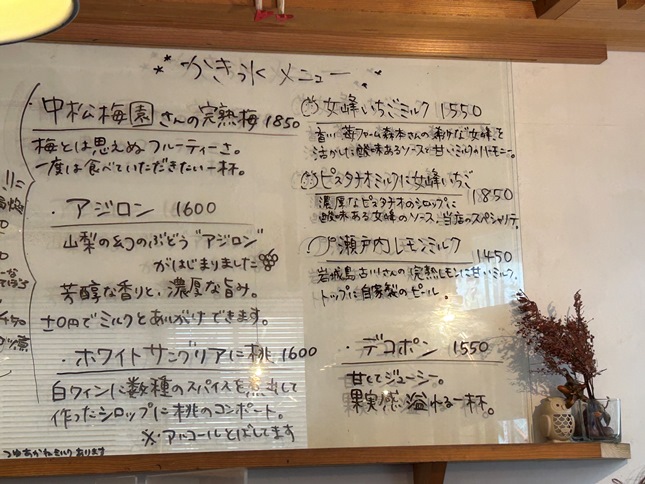 かき氷メニュー
・中松梅園さんの完熟梅 1850
梅とは思えぬフルーティーさ。
一度は食べていただきたい一杯。
・アジロン 1600
山梨の幻のぶどう"アジロン"
がはじまりました
芳醇な香りと、濃厚な旨み。
±0円でミルクとあいがけできます。
・ホワイトサングリアに桃 1600
白ワインに数種のスパイスを煮出して
作ったシロップに桃のコンポート。
※アルコールとばしてます
女峰いちごミルク 1550
香川 苺ファーム森本さんの希少な"女峰"を
活かした酸味あるソースと甘いミルクのハーモニー。
ピスタチオミルクに女峰いちご 1850
濃厚なピスタチオのシロップに
酸味ある女峰のソース。当店のスペシャリテ。
瀬戸内レモンミルク 1450
岩城島古川さんの完熟レモンに甘いミルク。
トップに自家製のピール。
・デコポン 1550
甘くてジューシー。
果実感溢れる一杯。